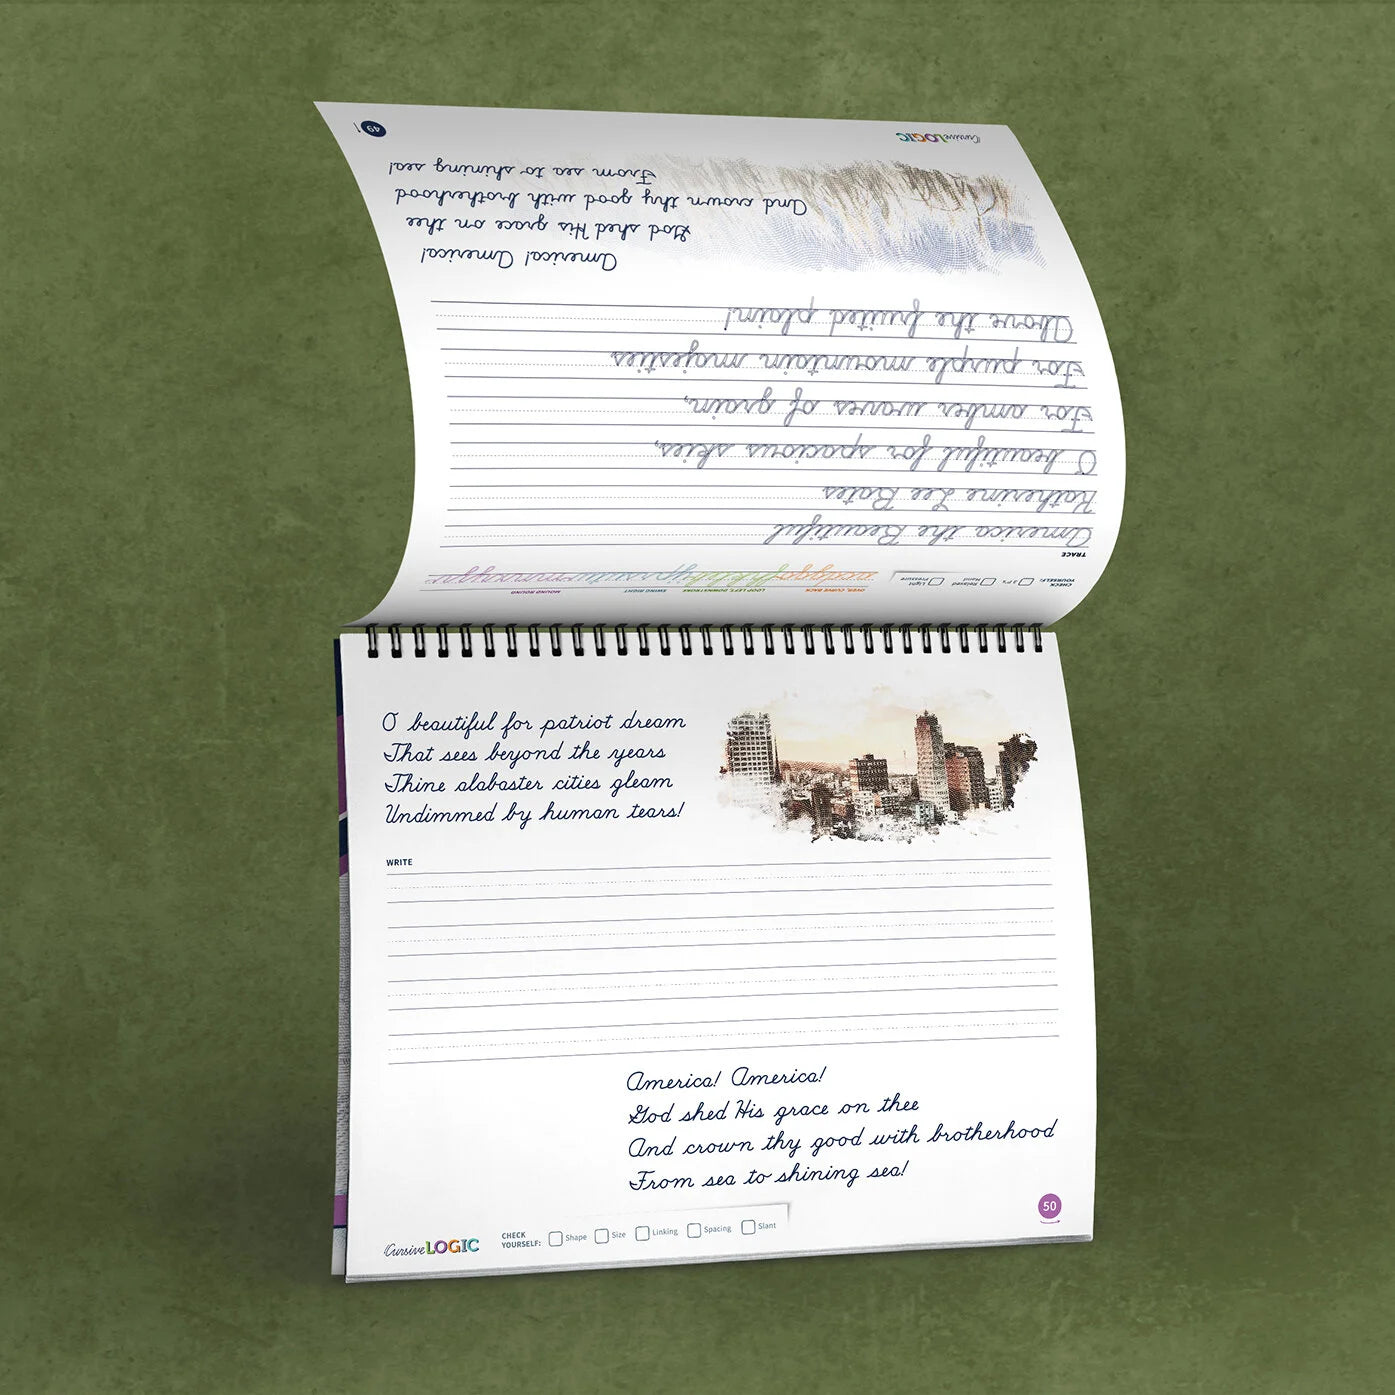 49
CursiveLOGIC
America! America!
God shed His grace on thee
And crown thy good with brotherhood
From sea to shining sea!
TRACE
America the Beautiful
Katherine Lee Bates
O beautiful for spacious skies,
For amber waves of grain,
For purple mountain majesties
Above the fruited plain!
OVER, CURVE BACK
LOOP LEFT, DOWNSTROKE
SWING RIGHT
MOUND ROUND
CHECK
YOURSELF:
3 P's
Relaxed
Hand
Light
Pressure
O beautiful for patriot dream
That sees beyond the years
Thine alabaster cities gleam
Undimmed by human tears!
WRITE
America! America!
God shed His grace on thee
And crown thy good with brotherhood
From sea to shining sea!
50
CursiveLOGIC
CHECK
YOURSELF:
Shape
Size
Linking
Spacing
Slant